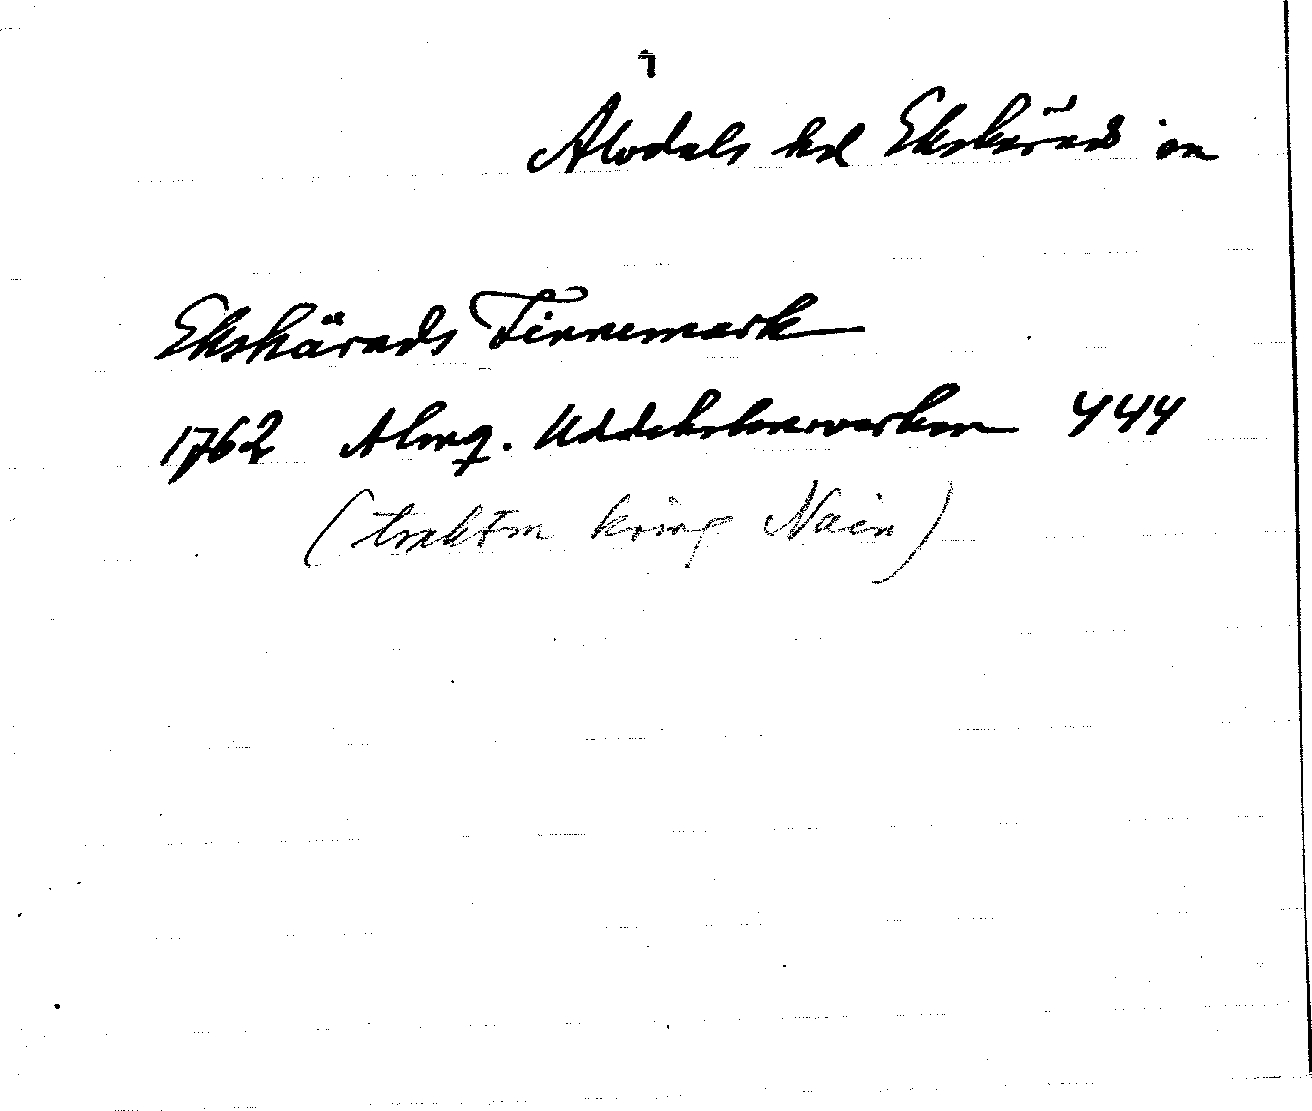 Älvdals hd Ekshärads sn
Ekshärads Finnemark
1762 Almq. Uddeholmsverken 444
(trakten kring Nain)